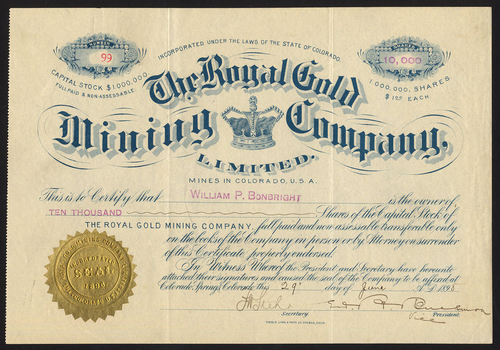 NUMBER
99
INCORPORATED UNDER THE LAWS OF THE STATE OF COLORADO.
10,000
CAPITAL STOCK $1,000,000
FULL PAID & NON-ASSESSABLE.
1,000,000, SHARES
$1.00 EACH.
The Royal Gold
Mining Company,
LIMITED.
MINES IN COLORADO, U.S.A.
This is to Certify that WILLIAM P. BONBRIGHT is the owner of
TEN THOUSAND Shares of the Capital Stock of
THE ROYAL GOLD MINING COMPANY, full paid and non assessable transferable only
on the books of the Company in person or by Attorney on surrender
of this Certificate properly endorsed.
In Witness Whereof the President and Secretary have hereunto
attached their signatures and caused the seal of the Company to be affixed at
Colorado Springs Colorado this 29th day of June A.D. 189
Secretary.
President.
Vice
SEAL